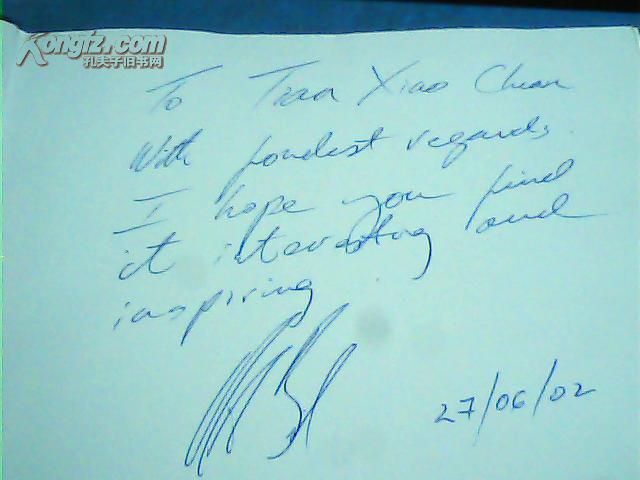 Kongfz.com
孔夫子旧书网
To Tian Xiao Chuan
With fondest regards.
I hope you find
it interesting and
inspiring
27/06/02